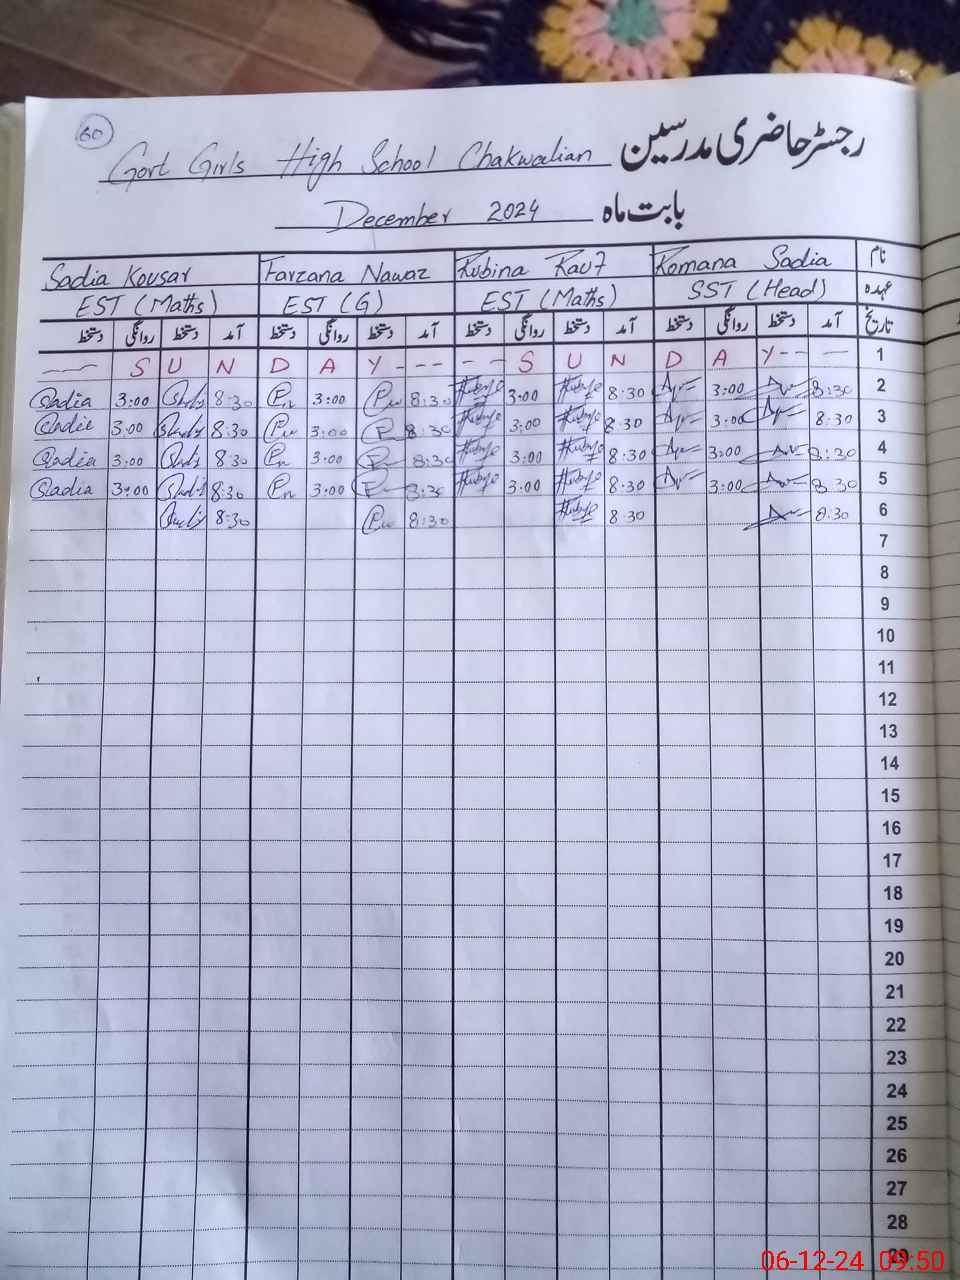 60
Govt Girls High School Chakwalian رجسٹر حاضری مدرسین
December 2024 بابت ماہ
Sadia Kousar Farzana Nawaz Rubina Rauf Romana Sadia نام
EST (Maths) EST (G) EST (Maths) SST (Head) عہدہ
دستخط روانگی دستخط آمد دستخط روانگی دستخط آمد دستخط روانگی دستخط آمد دستخط روانگی دستخط آمد تاریخ
S U N D A Y - - - - - S U N D A Y - - - 1
Sadia 3:00 8:30 3:00 8:30 3:00 8:30 3:00 8:30 2
Sadia 3:00 8:30 3:00 8:30 3:00 8:30 3:00 8:30 3
Sadia 3:00 8:30 3:00 8:30 3:00 8:30 3:00 8:30 4
Sadia 3:00 8:30 3:00 8:30 3:00 8:30 3:00 8:30 5
8:30 8:30 8:30 8:30 6
7
8
9
10
11
12
13
14
15
16
17
18
19
20
21
22
23
24
25
26
27
28
29
06-12-24 09:50